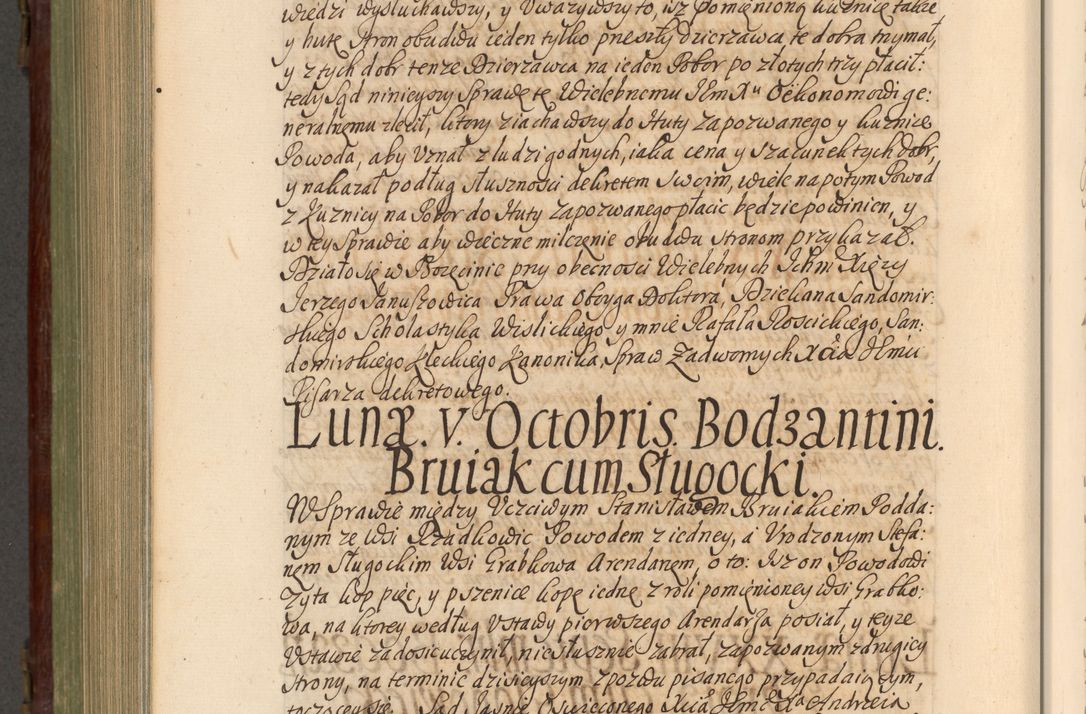 wiedzi wysłuchawszy, y Uwazywszy to, isz pomięnioną kuznicę także
y hutę Aron obudwu ieden tylko przeszły dzierzawca te dobra trzymał,
y z tych dobr tenze Dzierzawca na ieden Pobor po złotych trzy płacił:
tedy Sąd ninieyszy Sprawę tę Wielebnemu JEm Xu Oekonomowi ge:
neralnemu zlecił, ktory ziachawszy do Huty Zapozwanego y kuznice
Powoda, aby Uznał z ludzi godnych, iaka cena y szacunek tych dobr,
y nakazał podług słusznosci dekretem swoim, wiele na potym Powod
z Kuznicy na Pobor do Huty Zapozwanego płacic będzie powinien, y
w tey Sprawie aby wieczne milczenie obudwu stronom przykazał.
Działo się w Borzęcinie przy obecnosci Wielebnych Ichm Xięzy
Jerzego Januszowica Prawa Oboyga Doktora, Dziekana Sandomir:
skiego Scholastyka Wislickiego y mnie Rafała Roscickiego, San:
domirskiego Kleckiego Kanonika, Spraw Zadwornych Xcia JEmci
Pisarza dekretowego.
Lunæ. V. Octobris. Bodzantini.
Bruiak cum Sługocki.
W Sprawie między Uczciwym Stanisławem Bruiakiem Podda:
nym ze Wsi Rzadkowic Powodem z iedney, a Urodzonym Stefa:
nem Sługockim Wsi Grabkowa Arendarzem, o to: Isz on Powodowi
Zyta kop pięc, y pszenice kopę iednę z roli pomięnioney wsi Grabko:
wa, na ktorey według Ustawy pierwszego Arendarza posiał, y teyze
Ustawie zadosic uczynił, niesłusznie zabrał, zapozwanym z drugiey
strony, na terminie dzisieyszym z pozwu pisanego przypadaiącym,
toczącey się. Sąd Jasnie Oswieconego Xcia JEmci Xa Andrzeia